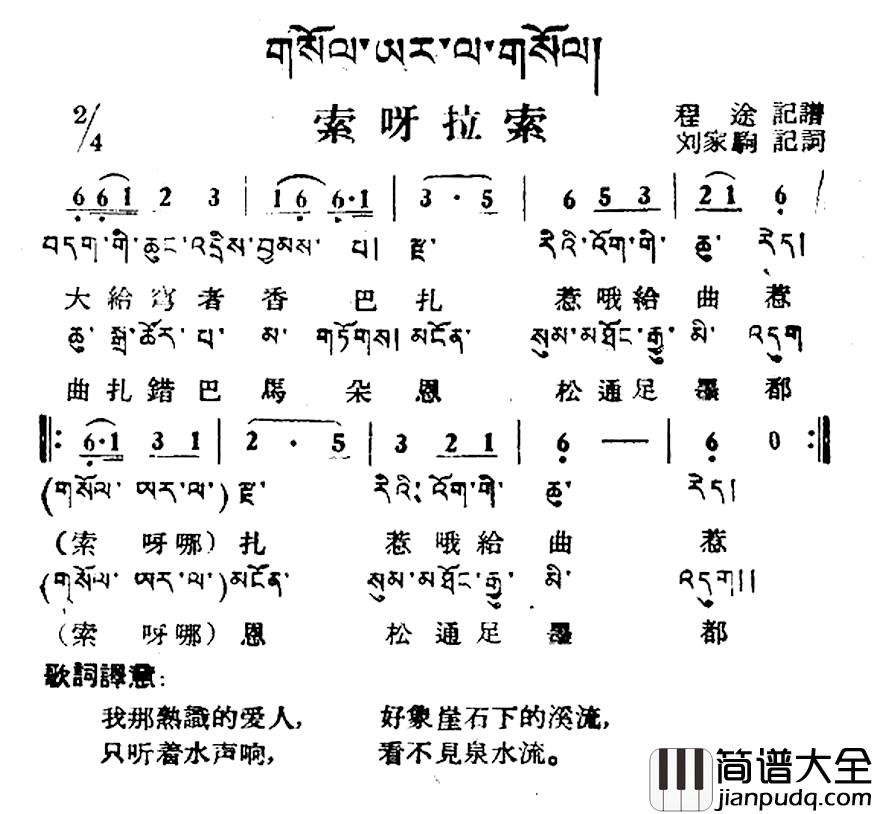 གསོལ་ཨར་ལ་གསོལ།
2/4
索呀拉索
程途 記譜
刘家駒 記詞
6 6 1 2 3 | 1 6 6·1 | 3 · 5 | 6 5 3 | 2 1 6 /
བདག་གི་ཆུང་འདྲིས་བྱམས་ པ། རྫ་ རིའི་འོག་གི་ ཆུ་ རེད།
大給穹者香 巴扎 惹哦給曲惹
ཆུ་ སྒྲ་ཚོར་ པ་ མ་ གཏོགས། མངོན་ སུམ་མཐོང་རྒྱུ་ མི་ འདུག
曲扎錯巴馬朵恩 松通足墨都
‖: 6·1 3 1 | 2 · 5 | 3 2 1 | 6 — | 6 0 :‖
(གསོལ་ ཨར་ལ་) རྫ་ རིའི་ འོག་གི་ ཆུ་ རེད།
(索 呀哪) 扎 惹哦給 曲 惹
(གསོལ་ ཨར་ལ་) མངོན་ སུམ་མཐོང་རྒྱུ་ མི་ འདུག།།
(索 呀哪) 恩 松通足 墨 都
歌詞譯意:
我那熟識的爱人, 好象崖石下的溪流,
只听着水声响, 看不見泉水流。
简谱大全
jianpudq.com